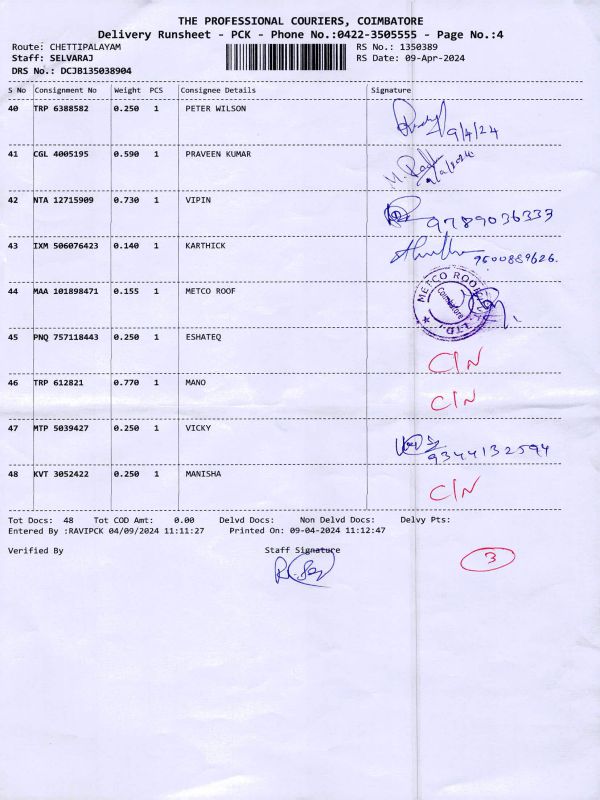 THE PROFESSIONAL COURIERS, COIMBATORE
Delivery Runsheet - PCK - Phone No.:0422-3505555 - Page No.:4
Route: CHETTIPALAYAM RS No.: 1350389
Staff: SELVARAJ RS Date: 09-Apr-2024
DRS No.: DCJB135038904
S No Consignment No Weight PCS Consignee Details Signature
40 TRP 6388582 0.250 1 PETER WILSON 9/4/24
41 CGL 4005195 0.590 1 PRAVEEN KUMAR
42 NTA 12715909 0.730 1 VIPIN 9789036333
43 IXM 506076423 0.140 1 KARTHICK 9600889626.
44 MAA 101898471 0.155 1 METCO ROOF METCO ROOF Coimbatore LTD.
45 PNQ 757118443 0.250 1 ESHATEQ C/N
46 TRP 612821 0.770 1 MANO C/N
47 MTP 5039427 0.250 1 VICKY 9344132594
48 KVT 3052422 0.250 1 MANISHA C/N
Tot Docs: 48 Tot COD Amt: 0.00 Delvd Docs: Non Delvd Docs: Delvy Pts:
Entered By :RAVIPCK 04/09/2024 11:11:27 Printed On: 09-04-2024 11:12:47
Verified By Staff Signature
3